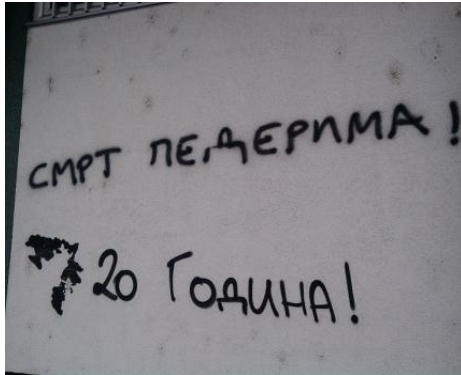 СМРТ ПЕДЕРИМА!
20 ГОДИНА!